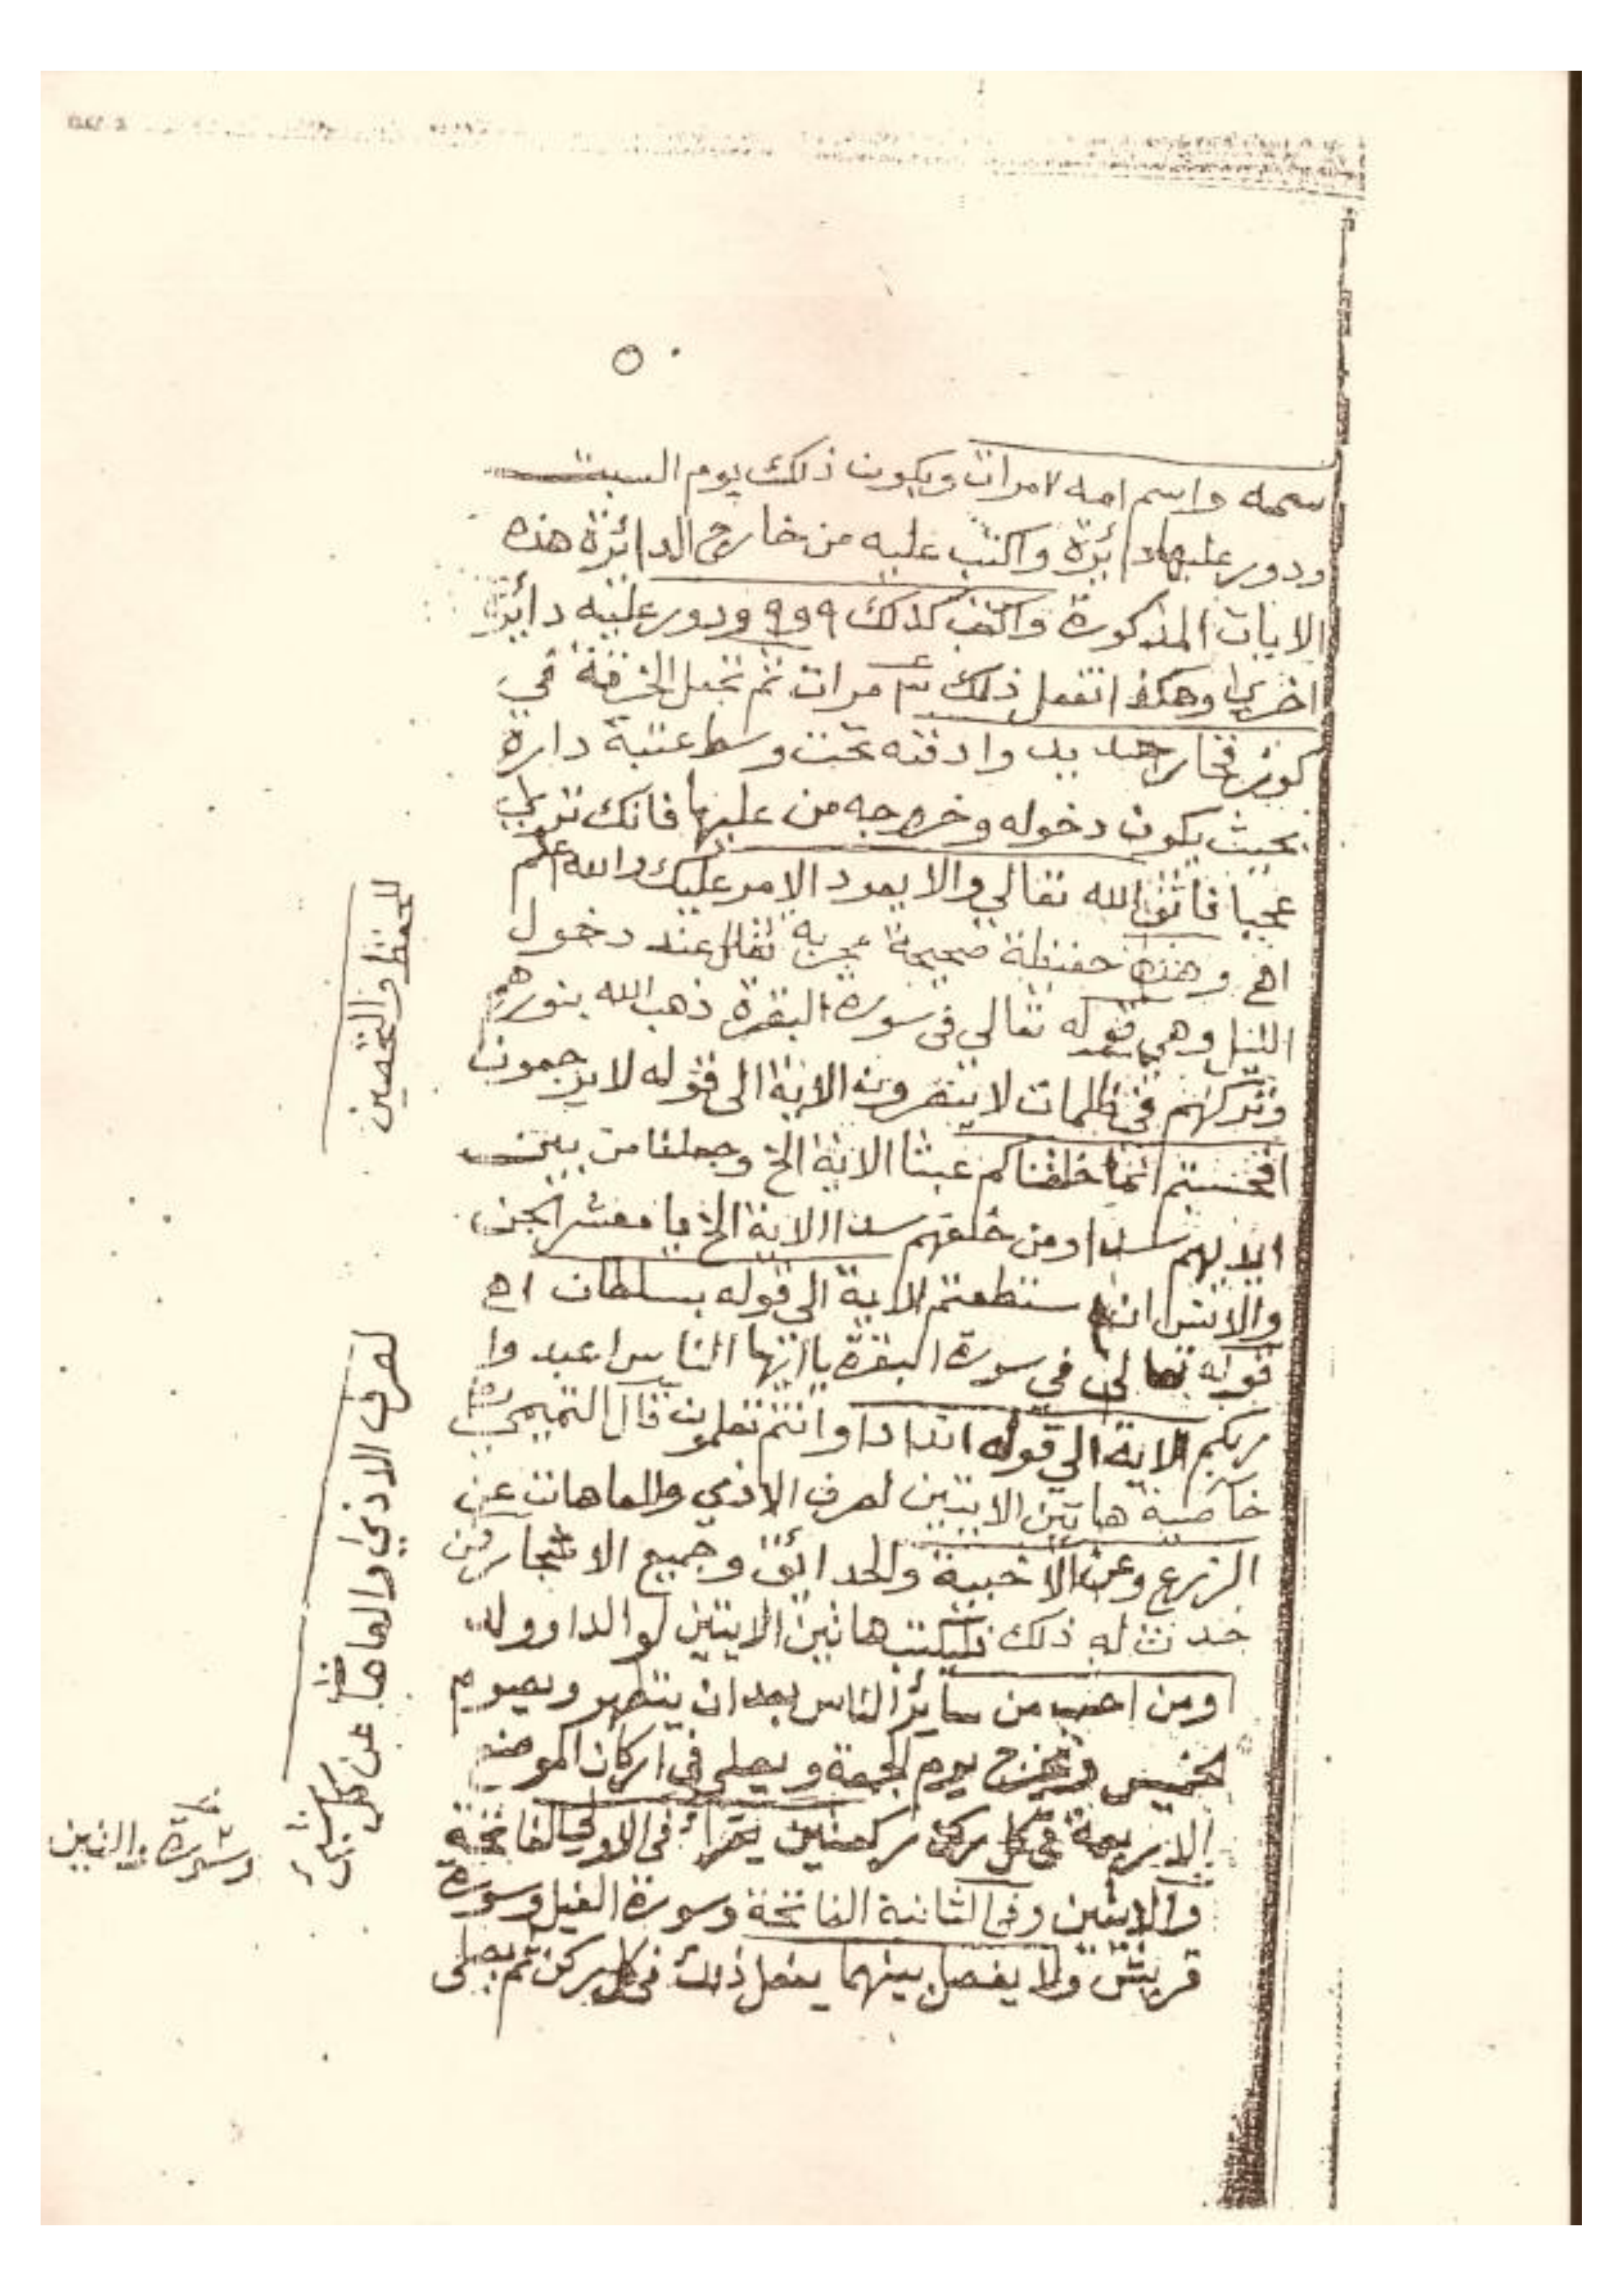 ٥٠
سمه واسم امه ٣مرات ويكون ذلك يوم السبت
ودور عليها دائرة واكتب عليه من خارج الدائرة هذه
الايات المذكورة واكتب كذلك ٩و٩ ودور عليه دائرة
اخرى وهكذا تفعل ذلك ٣ مرات ثم تجعل الخرقة في
كوز فخار جديد وادفنه تحت وسط عتبة دارة
بحيث يكون دخوله وخروجه من عليها فانك ترى
عجبا فاتق الله تعالي والا يعود الامر عليك والله اعلم
اه وهذه حفيظة صحيحة مجربة تقال عند دخول
الليل وهي قوله تعالي في سورة البقرة ذهب الله بنورهم
وتركهم في ظلمات لا يبصرون الاية الى قوله لا يرجعون
افحسبتم انما خلقناكم عبثا الاية الخ وجعلنا من بين
ايديهم سدا ومن خلفهم سدا الاية الخ يا معشر الجن
والانس ان استطعتم الاية الى قوله بسلطان اه
قوله تعالى في سورة البقرة يا ايها الناس اعبدوا
ربكم الاية الي قوله اندادا وانتم تعلمون قال التميمي
خاصية هاتين الايتين لصرف الاذي والعاهات عن
الزرع وعن الاخبية والحدائق وجميع الاشجار فمن
حدث له ذلك فليكتب هاتين الايتين لو الدا وولد
ومن احب من سائر الناس بعد ان يتطهر ويصوم
الخميس ويخرج يوم الجمعة ويصلي في اركان الموضع
الاربعة في كل ركن ركعتين يقرأ في الاولي الفاتحة
والايتين وفي الثانية الفاتحة وسورة الفيل وسورة
قريش ولا يفصل بينهما يفعل ذلك في كل ركن ثم يصلى
للحفظ والتحصين
لصرف الاذى والعاهات عن كل شيئ